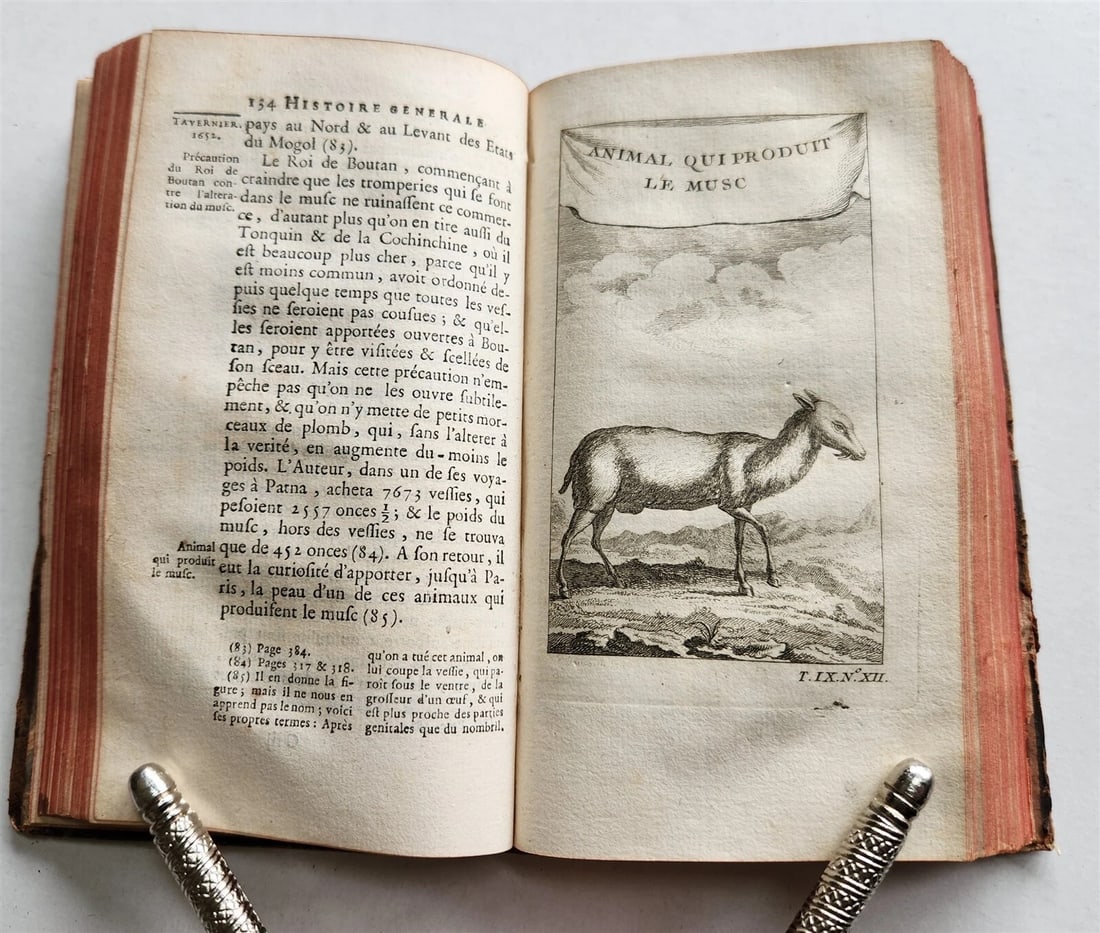 134 HISTOIRE GENERALE
TAVERNIER.
1652.
pays au Nord & au Levant des Etats
du Mogol (83).
Précaution
du Roi de
Boutan con-
tre l'altera-
tion du musc.
Le Roi de Boutan, commençant à
craindre que les tromperies qui ſe font
dans le muſc ne ruinaſſent ce commer-
ce, d'autant plus qu'on en tire auſſi du
Tonquin & de la Cochinchine, où il
eſt beaucoup plus cher, parce qu'il y
eſt moins commun, avoit ordonné de-
puis quelque temps que toutes les veſ-
ſies ne ſeroient pas couſues; & qu'el-
les ſeroient apportées ouvertes à Bou-
tan, pour y être viſitées & ſcellées de
ſon ſceau. Mais cette précaution n'em-
pêche pas qu'on ne les ouvre ſubtile-
ment, &. qu'on n'y mette de petits mor-
ceaux de plomb, qui, ſans l'alterer à
la verité, en augmente du-moins le
poids. L'Auteur, dans un de ſes voya-
ges à Patna, acheta 7673 veſſies, qui
peſoient 2557 onces ½; & le poids du
muſc, hors des veſſies, ne ſe trouva
que de 452 onces (84). A ſon retour, il
eut la curioſité d'apporter, juſqu'à Pa-
ris, la peau d'un de ces animaux qui
produiſent le muſc (85).
Animal
qui produit
le muſc.
(83) Page 384.
(84) Pages 317 & 318.
(85) Il en donne la fi-
gure; mais il ne nous en
apprend pas le nom; voici
ſes propres termes: Après
qu'on a tué cet animal, on
lui coupe la veſſie, qui pa-
roît ſous le ventre, de la
groſſeur d'un œuf, & qui
eſt plus proche des parties
genitales que du nombril.
ANIMAL QUI PRODUIT
LE MUSC
T. IX. N.º XII.